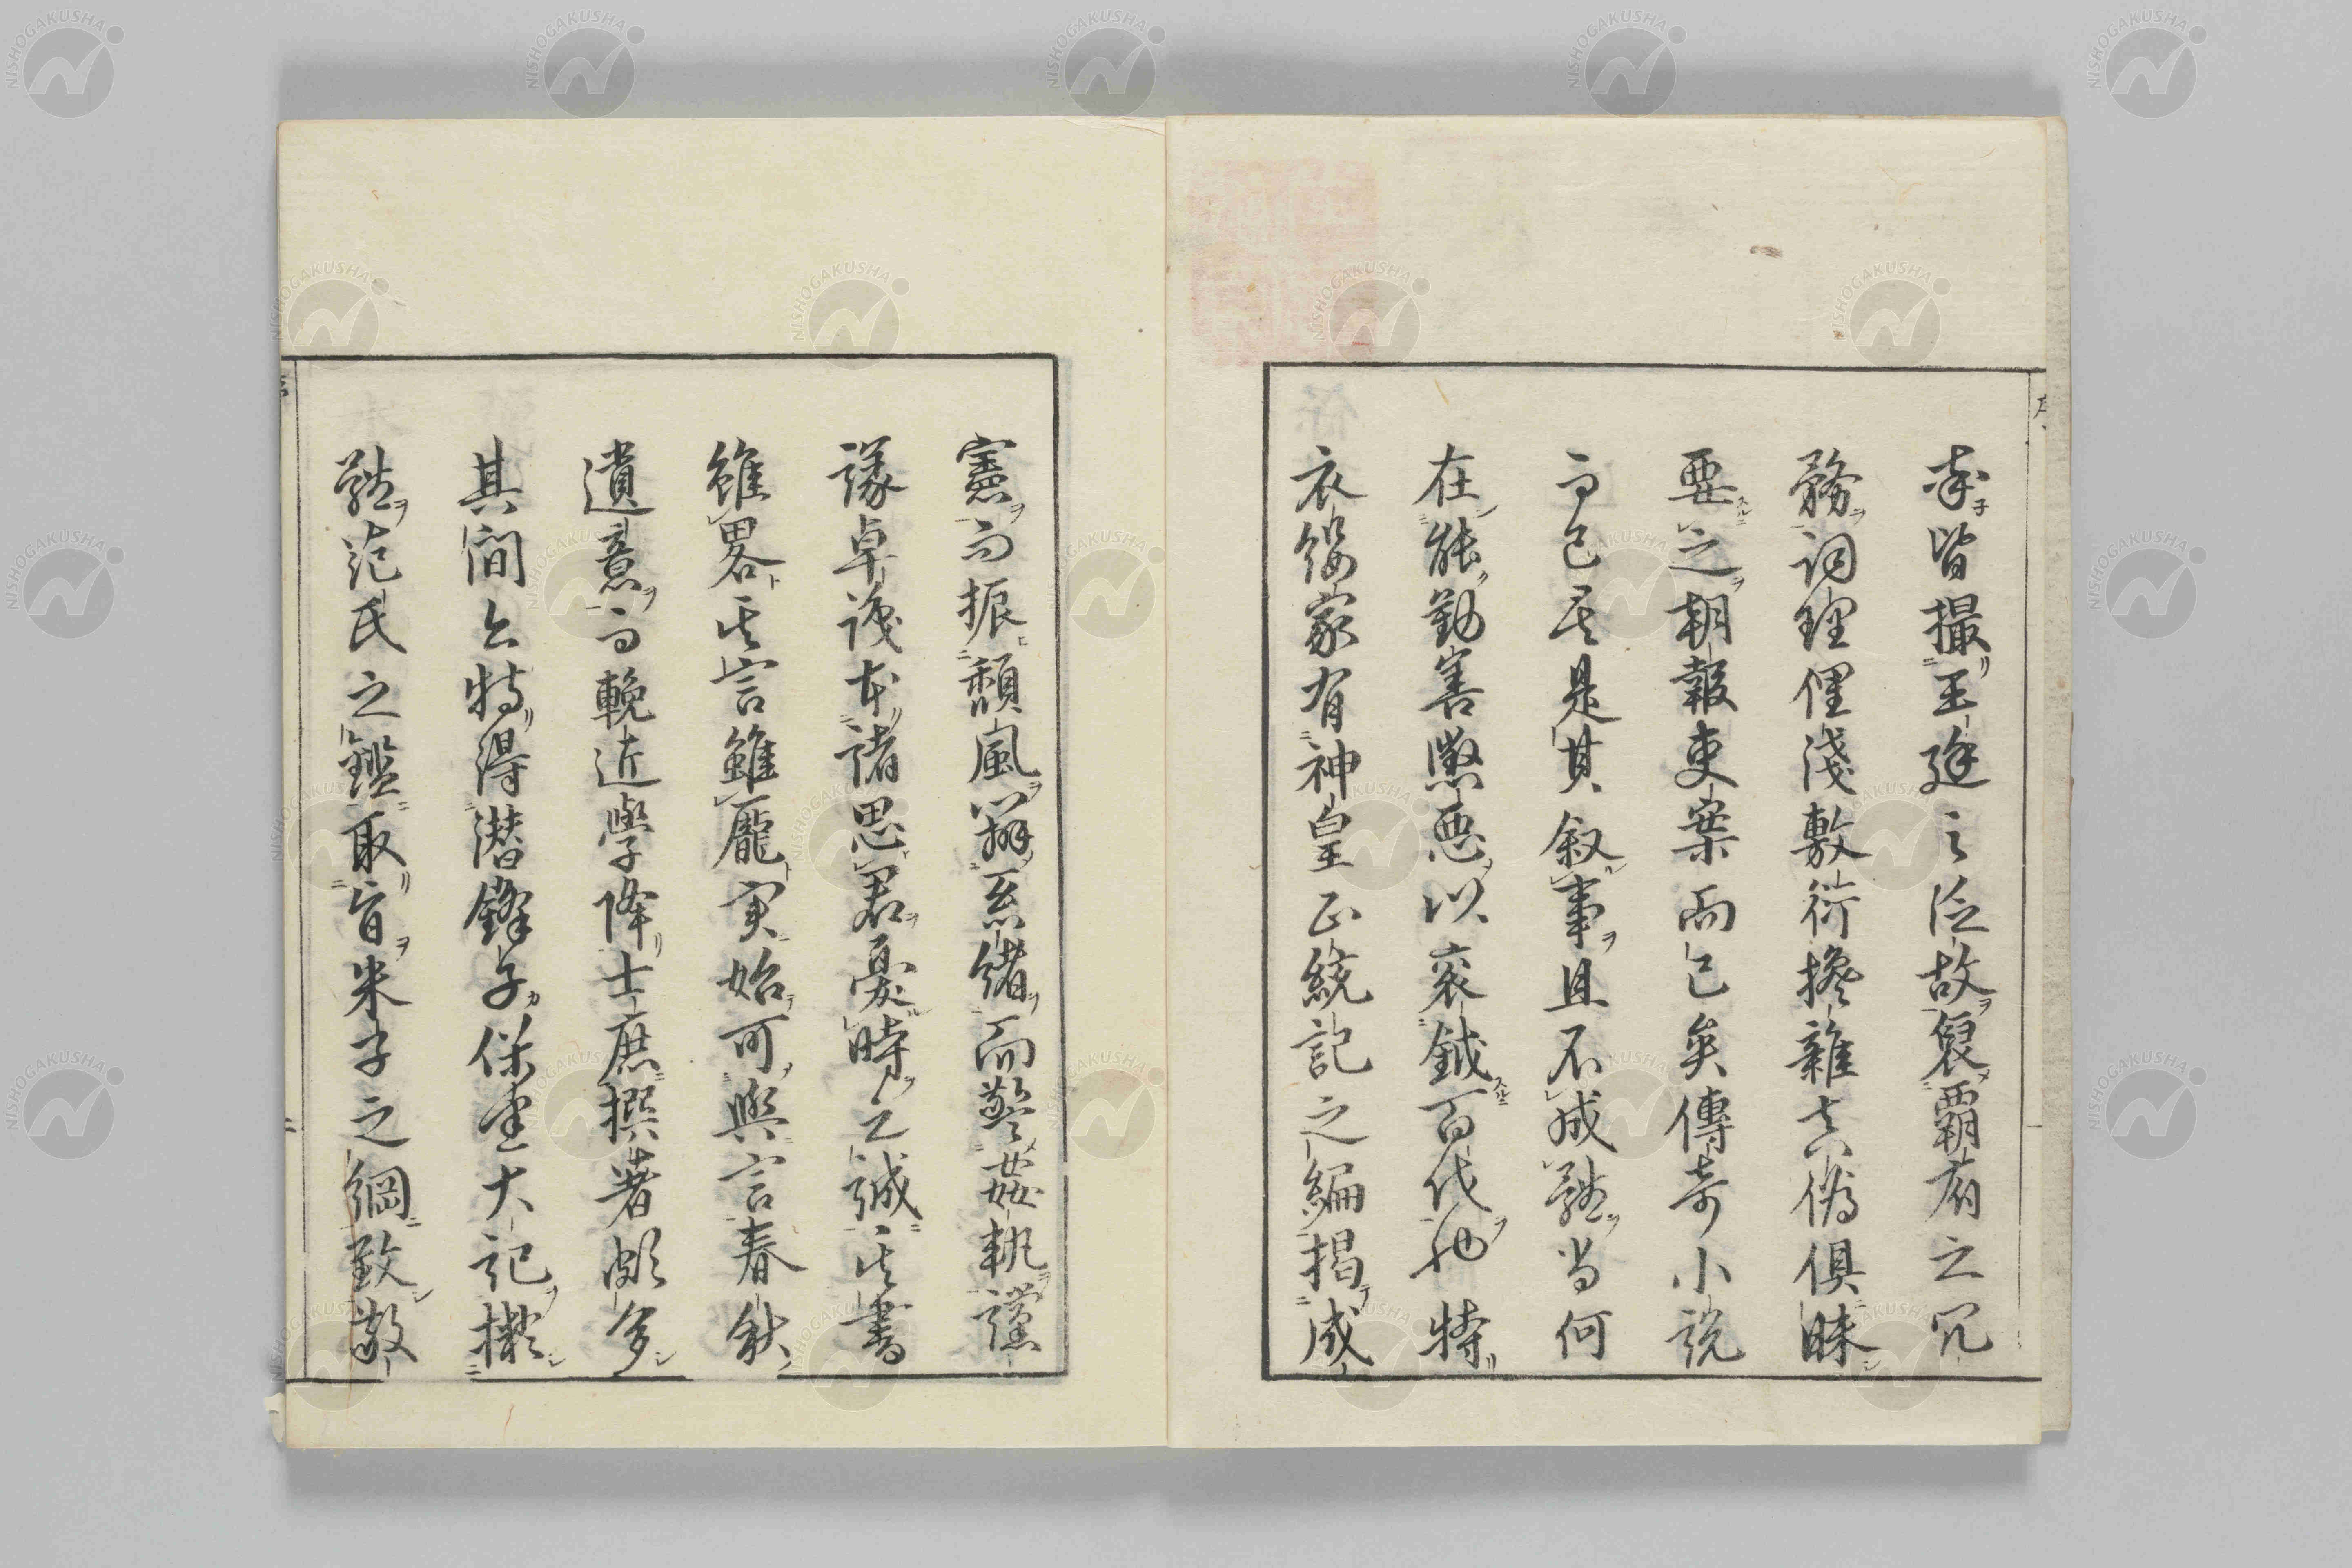 率皆撮王迹之淺故裒覇府之冗
務詞理俚淺敷衍攙雜真僞俱昧
要之朝報吏案而已矣傳奇小説
而已矣是其叙事且不成體当何
在能勸善懲惡以袞鉞百代也特
衣纓家有神皇正統記之編揭成
憲而振頽風辯系緒而警姦軌讜
議卓識本諸思君憂時之誠其書
雖畧其言雖厖実始可與言春秋
遺意而輓近學降士庶撰著頗多
其間乞特得潜鋒子保建大記擬
體范氏之鑑取旨朱子之綱致敬
NISHOGAKUSHA